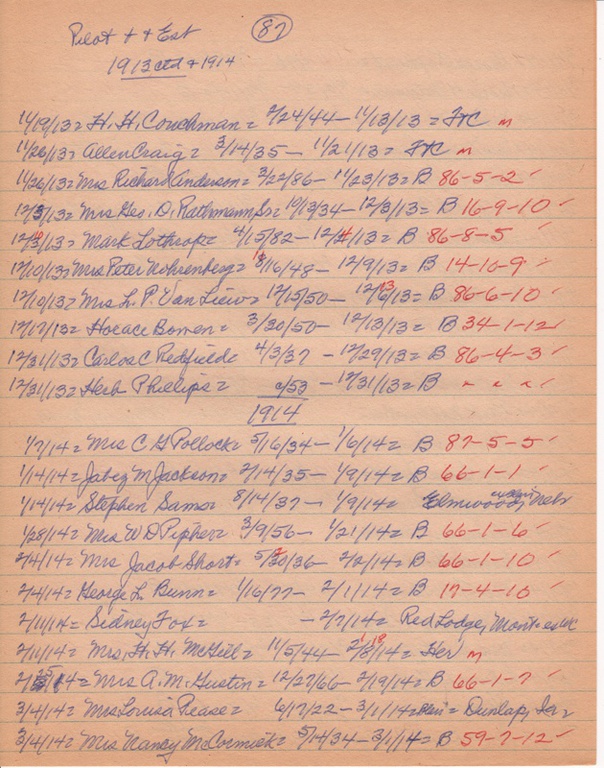 Pilot + + Est 87
1913 ctd + 1914
11/19/13 = H. H. Couchman = 2/24/44 – 11/13/13 = FTC m
11/26/13 = Allen Craig = 3/14/35 – 11/21/13 = FTC m
11/26/13 = Mrs Richard Anderson = 3/22/86 – 11/23/13 = B 86-5-2 ✓
12/3/13 = Mrs Geo. D. Rathmann Sr = 10/13/34 – 12/3/13 = B 16-9-10 ✓
12/10/13 = Mark Lothrop = 4/15/82 – 12/4/13 = B 86-8-5 ✓
12/10/13 = Mrs Peter Wohrenberg = 8/16/48 – 12/9/13 = B 14-10-9 ✓
12/10/13 = Mrs L. P. Van Liew = 12/15/50 – 12/6/13 = B 86-6-10 ✓
12/17/13 = Horace Bowen = 3/20/50 – 12/13/13 = B 34-1-12 ✓
12/31/13 = Carlos C Redfield = 4/3/37 – 12/29/13 = B 86-4-3 ✓
12/31/13 = Herb Phillips = c/53 – 12/31/13 = B " " " ✓
1914
1/7/14 = Mrs C G Pollock = 5/16/34 – 1/6/14 = B 87-5-5 ✓
1/14/14 = Jabez M Jackson = 2/14/35 – 1/9/14 = B 66-1-1 ✓
1/14/14 = Stephen Sams = 8/14/37 – 1/9/14 = Elmwood, Nebr
1/28/14 = Mrs W D Pipher = 3/9/56 – 1/21/14 = B 66-1-6 ✓
2/4/14 = Mrs Jacob Short = 5/20/36 – 2/2/14 = B 66-1-10 ✓
2/4/14 = George L. Bunn = 1/16/77 – 2/1/14 = B 17-4-10 ✓
2/11/14 = Sidney Fox = – 2/7/14 = Red Lodge, Mont
2/11/14 = Mrs. H. H. McGiel = 11/5/44 – 2/8/14 = Her m
14 = Mrs A. M. Gustin = 12/27/66 – 2/19/14 = B 66-1-7 ✓
3/4/14 = Mrs Louisa Pease = 6/17/22 – 3/1/14 = Dunlap, Ia =
3/4/14 = Mrs Nancy McCormick = 5/14/34 – 3/1/14 = B 59-7-12 ✓